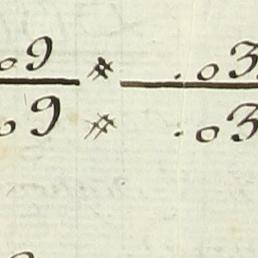 09 * .03
09 * .03